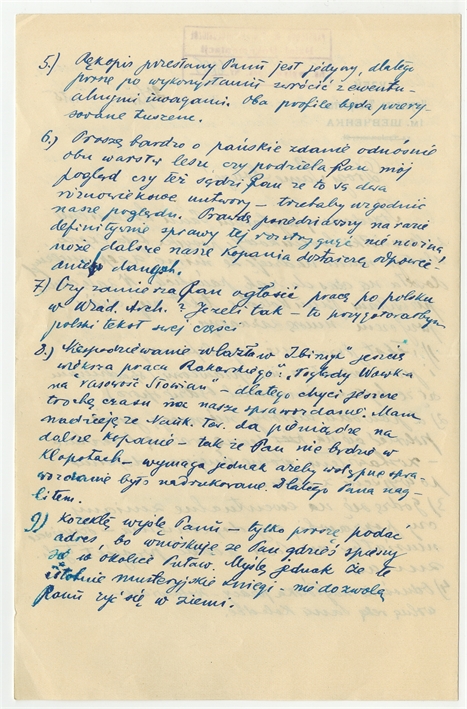 5.) Rękopis przesłany Panu jest jedyny, dlatego
proszę po wykorzystaniu zwrócić z ewentu-
alnymi uwagami. Oba profile będą przery-
sowane tuszem.
6.) Proszę bardzo o pańskie zdanie odnośnie
obu warstw lessu, czy podziela Pan mój
pogląd czy też sądzi Pan że to są dwa
różnowiekowe utwory – trzebaby uzgodnić
nasze poglądy. Prawdę powiedziawszy na razie
definitywnie sprawy tej rozstrzygnąć nie można,
może dalsze nasze kopania dostarczą odpowie-
dnich danych.
7.) Czy zamierza Pan ogłosić pracę po polsku
w Wiad. Arch.? Jeżeli tak – to przygotowałbym
polski tekst swej części.
8.) Niespodziewanie wlazła w "Zbirnyk" jeszcze
większa praca Rakowskiego: "Poglądy Wowka
na rasowość Słowian" – dlatego mamy jeszcze
trochę czasu na nasze sprawozdanie. Mam
nadzieję że Nauk. tow. da pieniądze na
dalsze kopanie – tak że Pan nie będzie w
kłopotach – wymaga jednak ażeby wstępne spra-
wozdanie było nadrukowane. Dlatego Pana nag-
liłem.
9.) Korektę wyślę Panu – tylko proszę podać
adres, bo wnioskuję że Pan gdzieś
w okolice Puław. Myślę jednak że te
księgi nie dozwolą
Panu ryć się w ziemi.
ІМ. ШЕВЧЕНКА